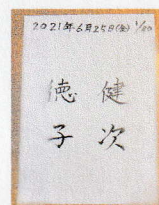 2021年6月25日(金) 1/20
健次
徳子